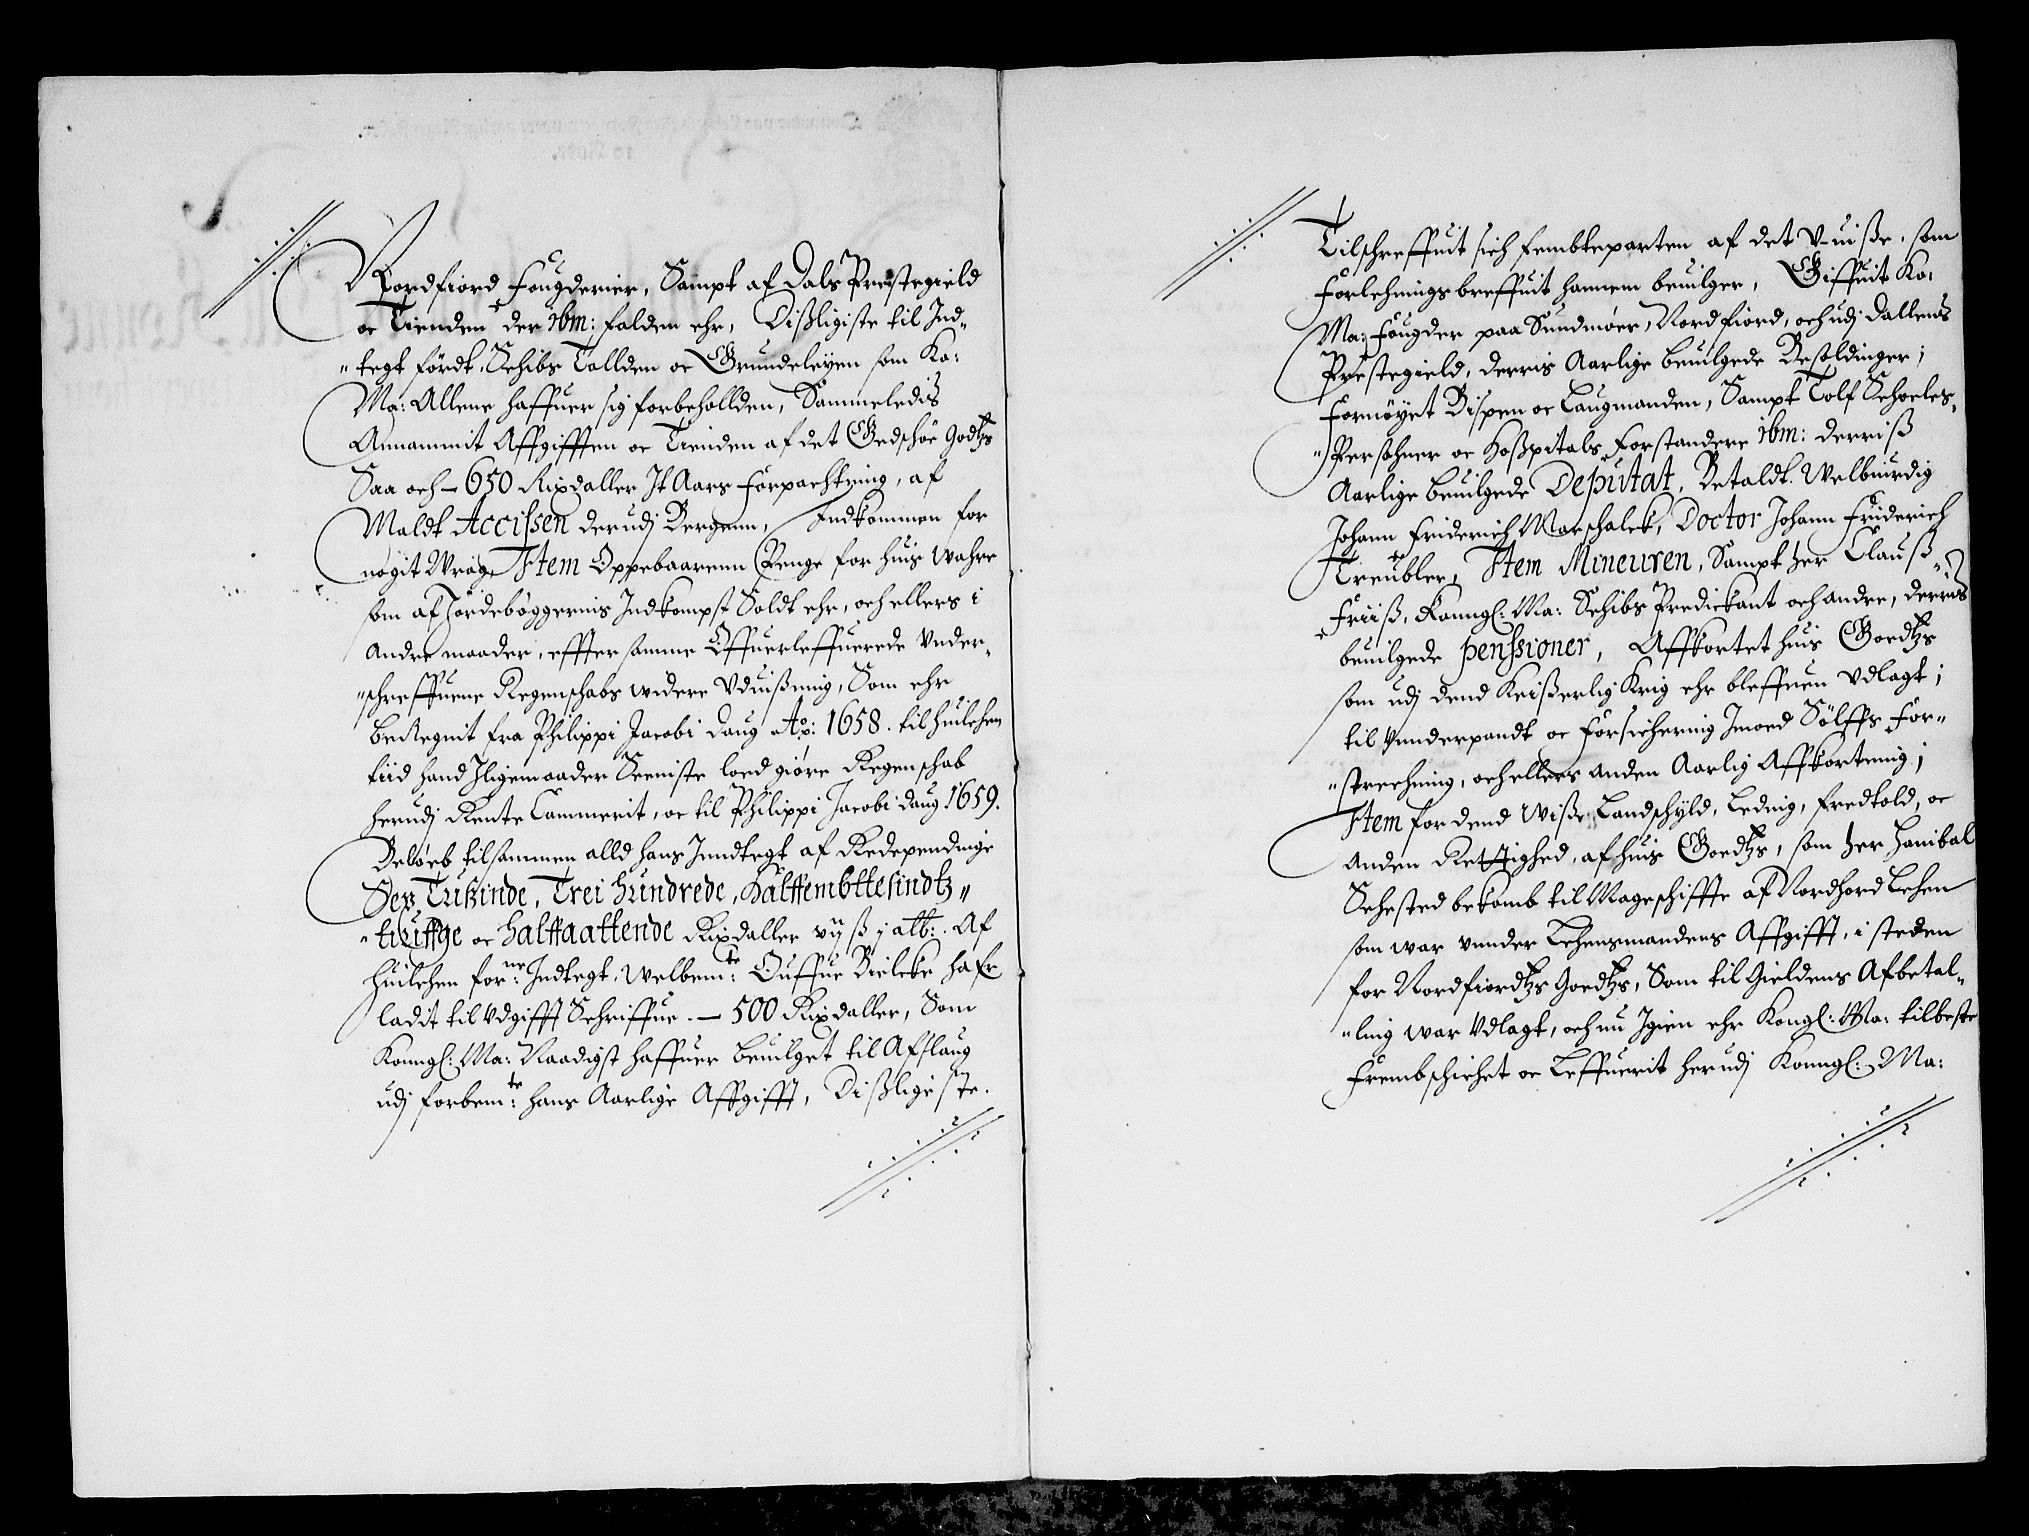 Nordfiord Fougderier, Sampt af Dals Prestegield
oc Tienden der ibm: falden ehr, Dißligiste til Ind-
"tegt fördt, Schibs Tollden oc Grundeleÿen som Ko:
Ma: Allene haffuer sig forbehollden, Sammeledis
Annammit Affgifften oc Tienden af det Gedschöe Godtzs
Saa och — 650 Rixdaller It Aars Forpachtning, af
Maldt Accissen derudj Bergenn, Indkommen for
nogit Wrag, Item Oppebaarenn Penge for huis Wahre
som af Jordebøggernis Indkompst Soldt ehr, och ellers i
Andre maader, effter samme Offuerleffuerede Vnder-
"schreffuene Regenschabs widere Vduißning, Som ehr
Beregnit fra Philippi Jacobi Daug Ao: 1658. til huilchen
tiid hand Jligemaader Seeniste loed giöre Regenschab
herudj Rente Cammerit, oc til Philippi Jacobi Daug 1659.
Beløeb tilsammen alld hans Inndtegt af Redependinge
Sex Tußinde, Trei hundrede, Halffembttesindtz"
"tiuffge oc halffaattende Rixdaller vij ß j alb:. Af
huilchen forne: Indtegt, Welbemte: Ouffue Bielcke hafr
ladit til Vdgifft Schriffue. — 500 Rixdaller, Som
Konngl: Ma: Naadigst haffuer beuilget til Afslaug
udj forbemte: hans Aarlige Affgifft, Dißligiste.
Tilschreffuit sich fembteparten af det V-uiße, som
Forlehningsbreffuit hannem beuilger, Giffuit Ko:
Ma: Fougder paa Sundmöer, Nordfiord, och udj Dallens
Prestegield, derris Aarlige beuilgede Besoldinger;
Fornöyet Bispen oc Laugmanden, Sampt Tolf Schoeles-
"Persohner oc Hoßpitals Forstandere ibm: derriß
Aarlige beuilgede Deputat, Betaldt. Welbiurdig
Johann Friderich Marschalck, Doctor Johann Friderich
Treubler, Item Mineuren, Sampt her Clauß"
Friiß, Konngl: Ma: Schibs Predickant och andre, derris
beuilgede penssioner, Affkortet huis Goedtzs
som udj dend Keißerlig Krig ehr bleffuen Vdlagt;
til Vnnderpandt oc Forsichernig Imoed Sölffs For-
"strechning, och ellers Anden Aarlig Affkortning;
Item for dend Wiße Landschyld, Leding, fredtold, oc
Anden Rettighed, af huis Goedtzs, som her Hanibal
Sehested bekomb til Mageschiffte af Nordhord Lehen
som war vnnder Lehensmandens Affgifft, i steden
for Nordfiordtzs Goedtzs, Som til Gieldens Afbetal-
"ling war Vdlagt, och nu Igien ehr Kongl: Ma: tilbeste
Frembschichet oc Leffuerit herudj Konngl: Ma: